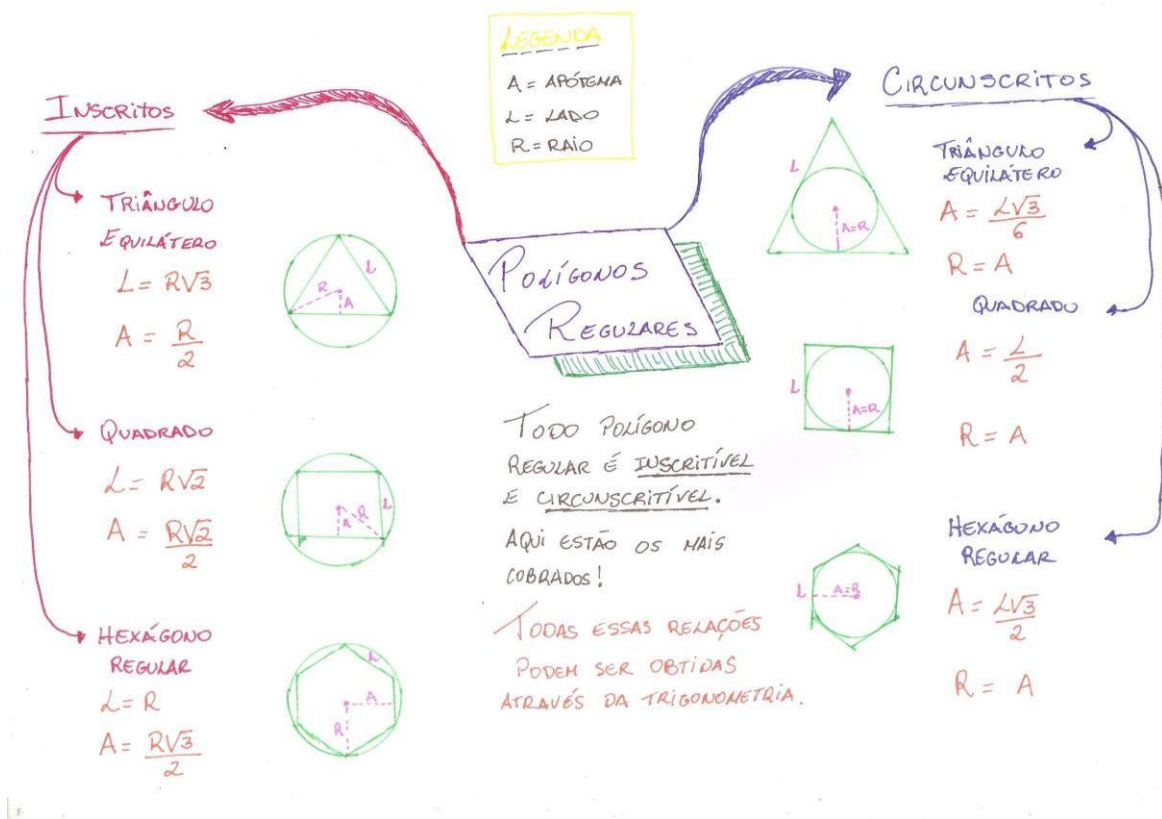 LEGENDA
A = APÓTEMA
L = LADO
R = RAIO
POLÍGONOS
REGULARES
INSCRITOS
TRIÂNGULO
EQUILÁTERO
L = R√3
A = R/2
R
A
L
QUADRADO
L = R√2
A = R√2/2
R
R
L
HEXÁGONO
REGULAR
L = R
A = R√3/2
L
A
R
TODO POLÍGONO
REGULAR É INSCRITÍVEL
E CIRCUNSCRITÍVEL.
AQUI ESTÃO OS MAIS
COBRADOS!
TODAS ESSAS RELAÇÕES
PODEM SER OBTIDAS
ATRAVÉS DA TRIGONOMETRIA.
CIRCUNSCRITOS
TRIÂNGULO
EQUILÁTERO
A = L√3/6
R = A
L
A=R
QUADRADO
A = L/2
R = A
L
A=R
HEXÁGONO
REGULAR
A = L√3/2
R = A
L
A=R